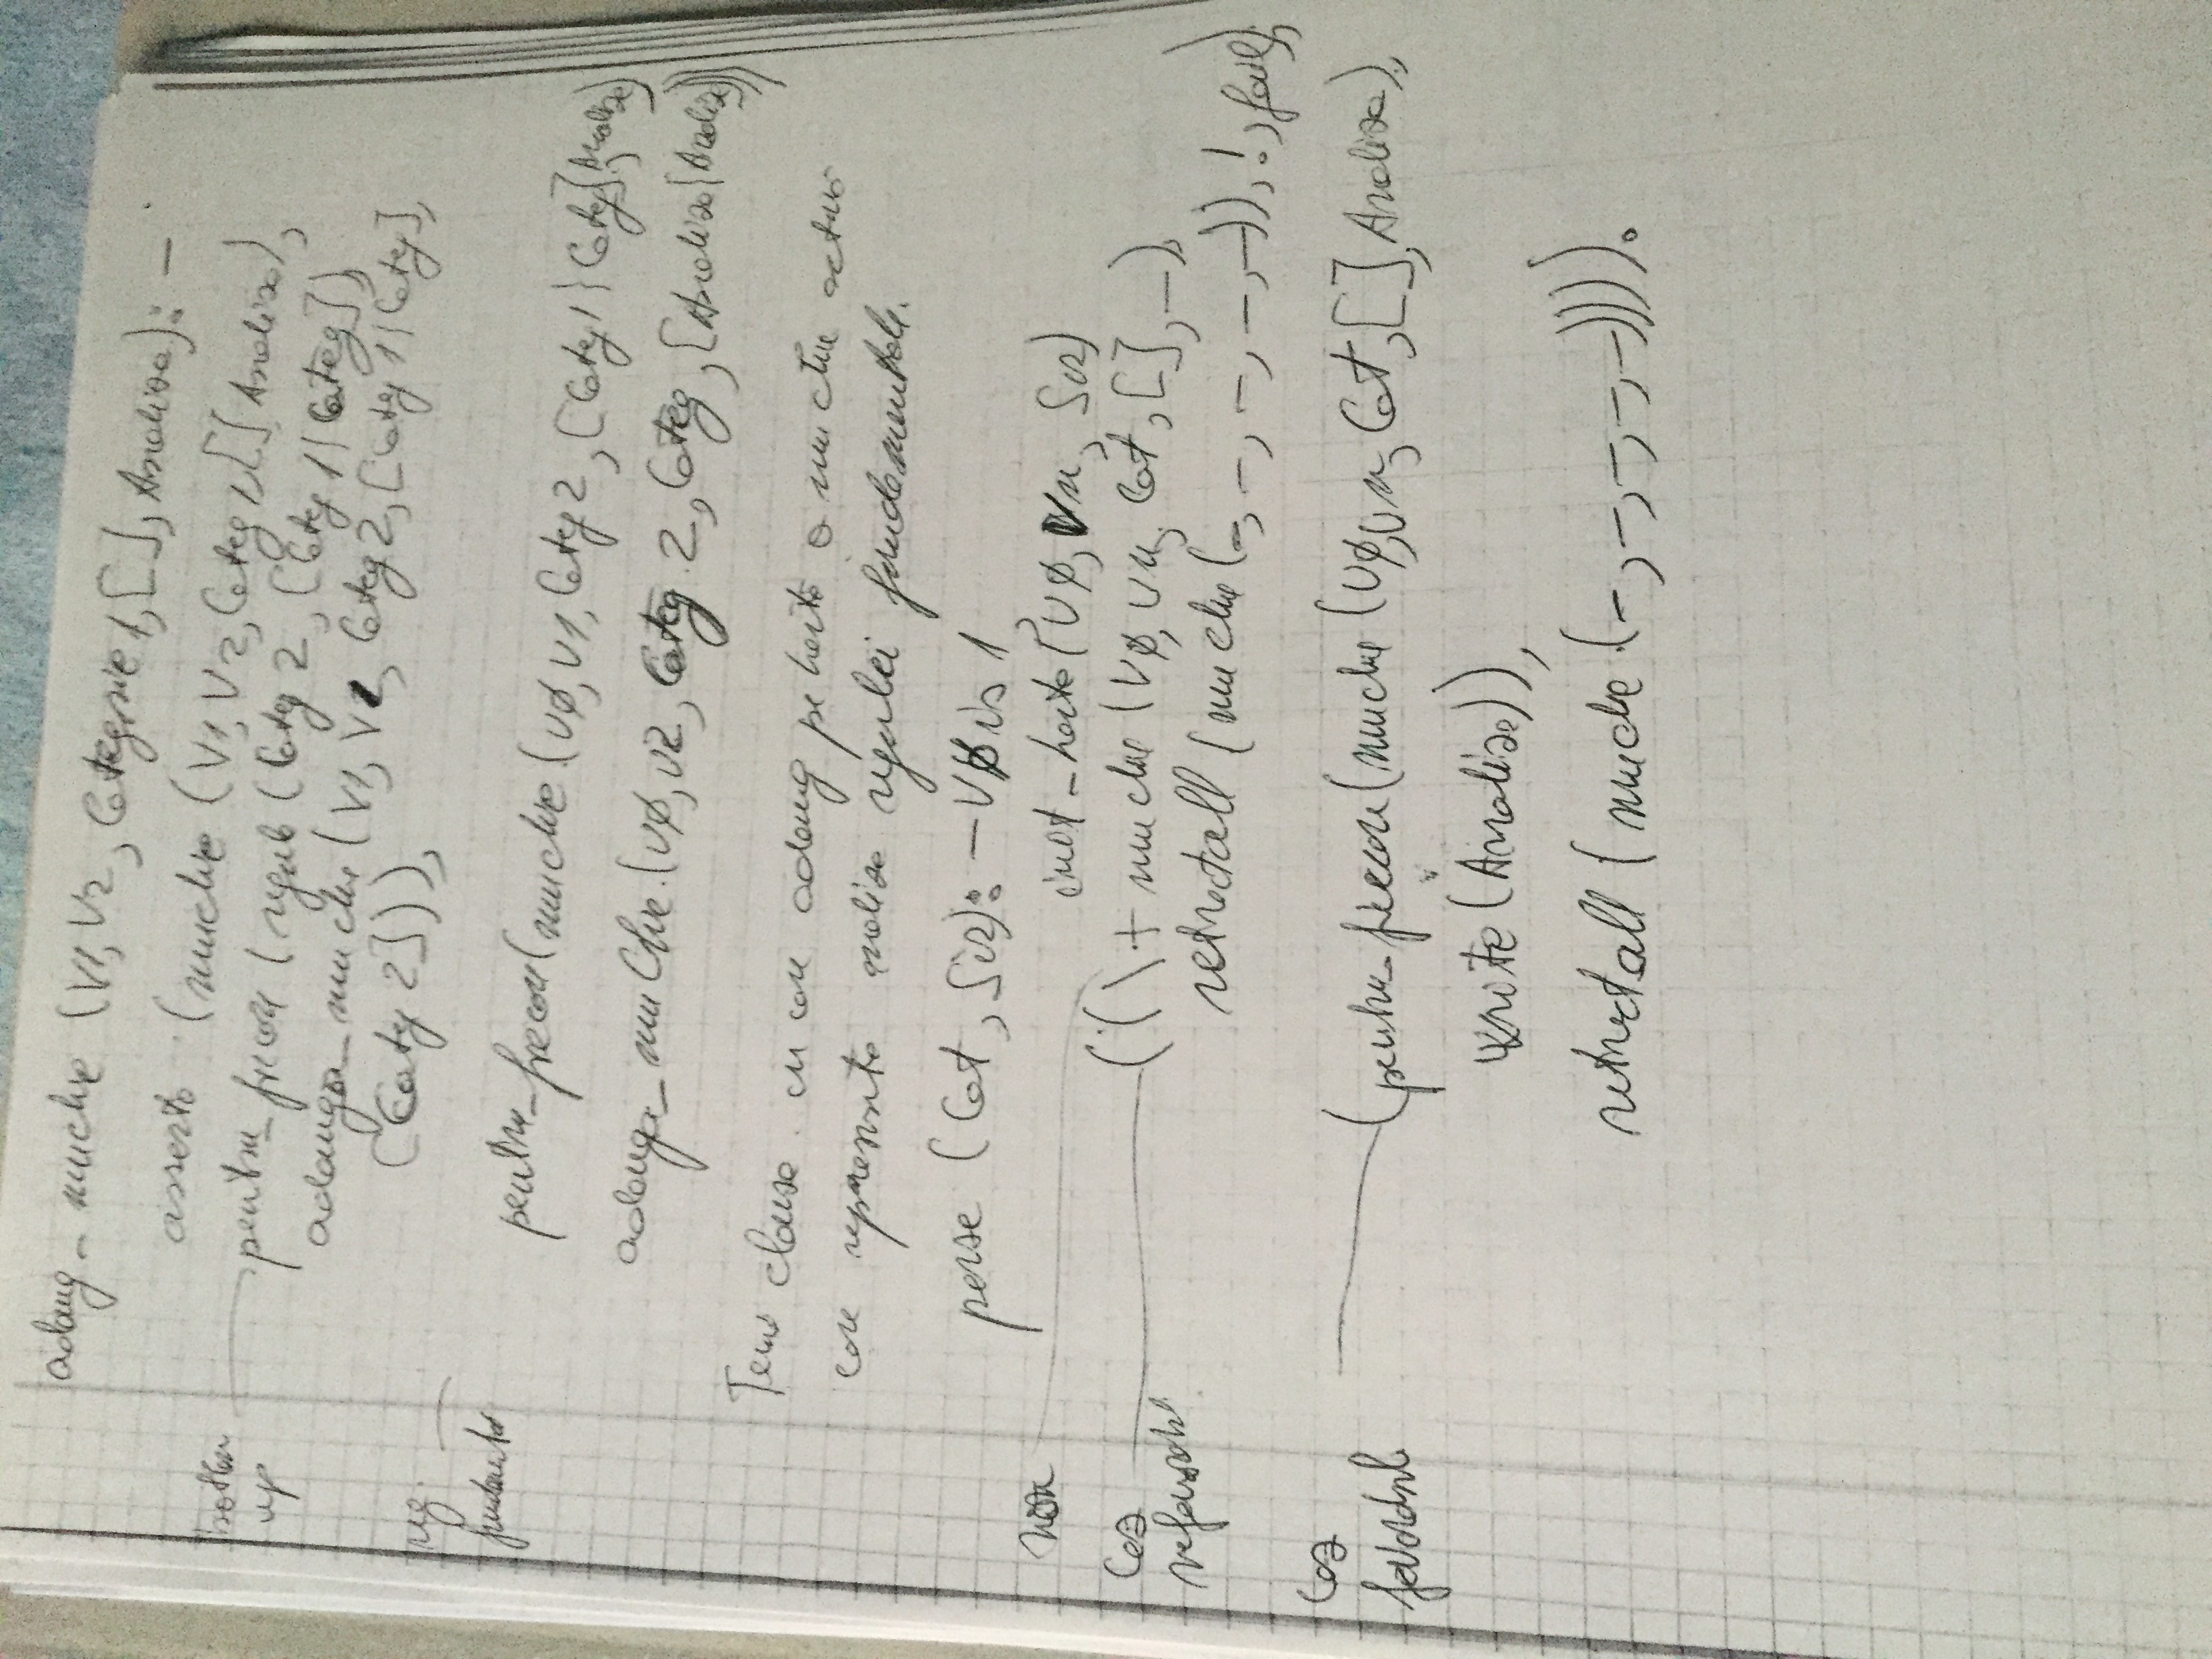 adaug_muchie (V1, V2, Categorie 1, [], Analiza) : -
asserta (muchie (V1, V2, Categ 1, [] Analiza),
bottom
up
pentru_fiecare (regula (Categ 2, [Categ 1 | Categ]),
adauga_muchie (V1, V1, Categ 2, [Categ 1 | Categ],
[Categ 2])),
reg.
fundamentala
pentru_fiecare (muchie (VØ, V1, Categ 2, [Categ 1 | Categ], Analize)
adauga_muchie (VØ, V2, Categ 2, Categ, [Analiza | Analize]))
Tema clauza cu care adaug pe harta o muchie activa
care reprezinta analiza regulei fundamentale.
parse (Cat, Sir) : - VØ is 1,
init_harta (VØ, Vn, Sir)
Caz
nefavorabil
((\+ muchie (VØ, Vn, Cat, [], _),
retractall (muchie (_, _, _, _, _)), !, fail);
Caz
favorabil
(pentru_fiecare (muchie (VØ, Vn, Cat, [], Analiza),
write (Analiza)),
retractall (muchie (_, _, _, _, _)))).